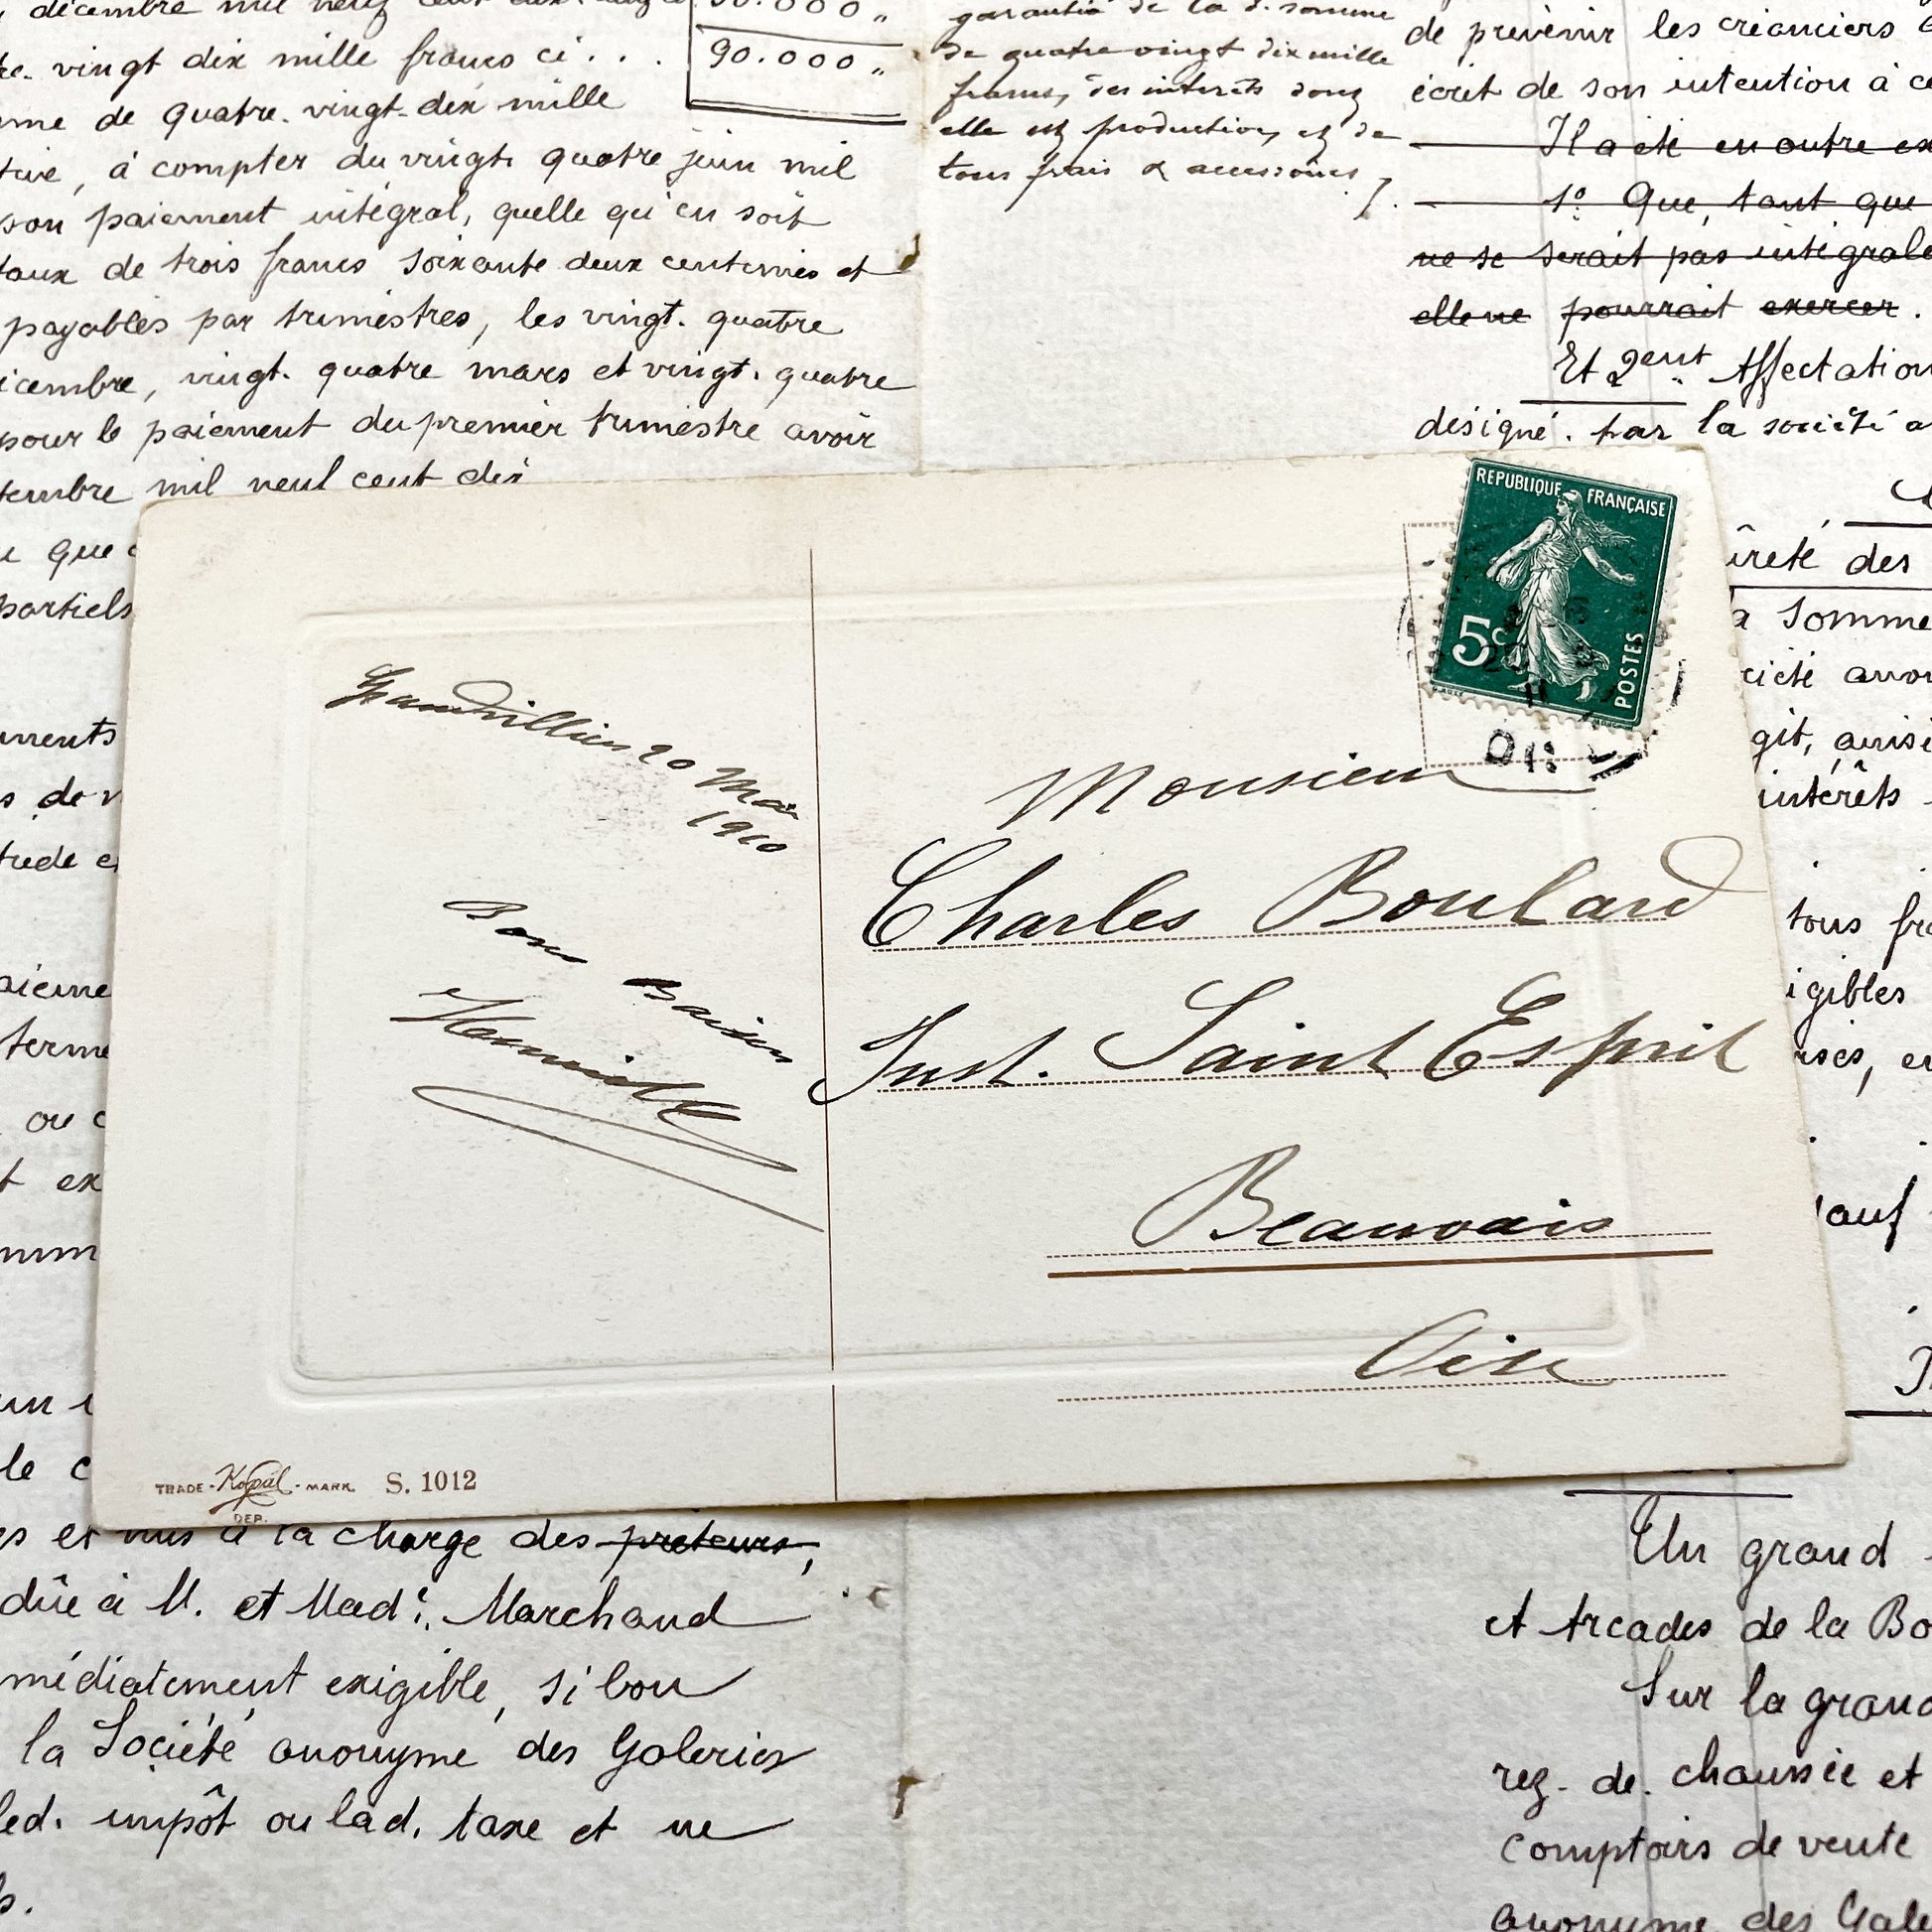 décembre mil neuf cent
50.000 „
vingt dix mille francs ci . . .
90.000 „
me de quatre. vingt-dix mille
à compter du vingt quatre juin mil
son paiement intégral, quelle qu'en soit
taux de trois francs soixante deux centimes et
payables par trimestres, les vingt. quatre
cembre, vingt. quatre mars et vingt. quatre
pour le paiement du premier trimestre avoir
tembre mil neuf cent dix
que
partiels
garantie de la d. somme
de quatre vingt dix mille
francs, des intérêts dont
elle est productive, et de
tous frais & accessoires
de prévenir les créanciers
écrit de son intention à ce
Il a été en outre ex
1º Que, tant que
ne se serait pas intégrale
elle ne pourrait exercer.
Et 2ent Affectation
désigné. par la société a
ûreté des
a somme
ciété anon
git,
intérêts
tous fra
igibles
auf
REPUBLIQUE FRANÇAISE
5c
POSTES
Grandvilliers 20 Mai
1910
Bons Baisers
Monsieur
Charles Boulard
Inst. Saint Esprit
Beauvais
Oise
TRADE - Kopal - MARK S. 1012
DEP.
ments
de
aieme
terme
ou
ex
le c
es et mis à la charge des prêteurs,
dûe à M. et Made. Marchand
médiatement exigible, si bon
la Société anonyme des Galeries
led. impôt ou lad. taxe et ne
Un grand
et Arcades de la Bo
Sur la grand
rez-de-chaussée et
comptoirs de vente
anonyme des Gale